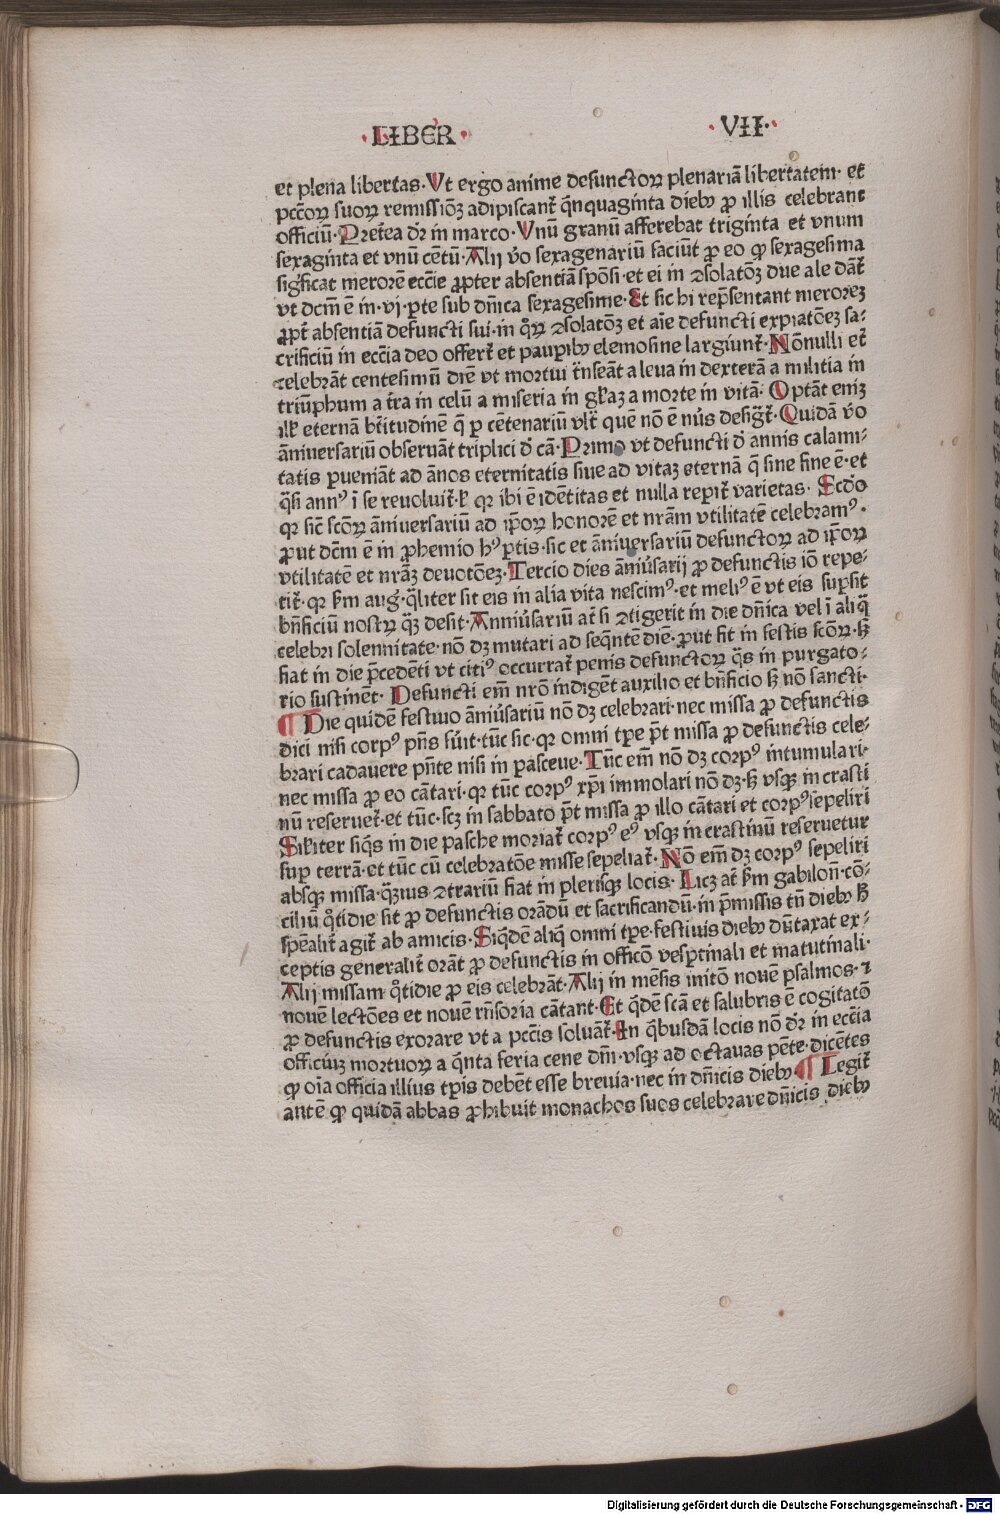 ·LIBER· ·VII·
et plena libertas·Vt ergo anime defunctoꝝ plenariā libertatem· et
pccōꝝ suoꝝ remissiōꝫ adipiscant᷑ q̄nquaginta dieb᷒ ꝓ illis celebrant
officiū·Pret̄ea dr̄ in marco·Vnū granū afferebat triginta et vnum
sexaginta et vnū centū·Alij v̄o sexagenariū faciūt ꝓ eo ꝙ sexagesima
siḡficat merorē eccīe ꝓpter absentiā spōsi·et ei in ꝯsolatōꝫ due ale dāt᷑
vt dcm̄ ē in·vj·ꝑte sub dn̄ica sexagesime·Et sic hi rep̄sentant meroreꝫ
ꝓpt̄ absentiā defuncti sui·in q̄ꝝ ꝯsolatōꝫ et aīe defuncti expiatōeꝫ sa⸗
crificiū in eccīa deo offert᷑ et pauꝑib᷒ elemosine largiunt᷑·Nōnulli et᷑
celebrāt centesimū diē vt mortui t̄nseāt a leua in dexterā a militia in
triūphum a t̄ra in celū a miseria in gl̄iaꝫ a morte in vitā· Optāt eniꝫ
ill̓ eternā bt̄itudinē q̄ ꝑ cētenariū vlt᷑ quē nō ē nūs desiḡt᷑·Quidā v̄o
āniuersariū obseruāt triplici d̄ cā·Primo vt defuncti d̄ annis calami⸗
tatis ꝑueniāt ad ānos eternitatis siue ad vitaꝫ eternā q̄ sine fine ē·et
q̄si ann᷒ ī se reuoluit᷑·l̓ qꝛ ibi ē idētitas et nulla reꝑit᷑ varietas· Scd̄o
qꝛ sic̄ scōꝝ āniuersariū ad ip̄oꝝ honorē et nr̄am vtilitatē celebram᷒·
ꝓut dcm̄ ē in ꝓhemio h᷒ ꝑtis·sic et āniuersariū defunctoꝝ ad ip̄oꝝ
vtilitatē et nr̄aꝫ deuotōeꝫ·Tercio dies āniu̓sarij ꝓ defunctis iō repe⸗
tit᷑·qꝛ s̄m aug̓·q̄liter sit eis in alia vita nescim᷒·et meli᷒ ē vt eis suꝑsit
bn̄ficiū nostꝝ q̄ꝫ desit·Anniu̓sariū at̄ si ꝯtigerit in die dn̄ica vel ī aliq̄
celebri solennitate·nō dꝫ mutari ad seq̄ntē diē·ꝓut fit in festis scōꝝ·sꝫ
fiat in die p̄cedēti vt citi᷒ occurrat᷑ penis defunctoꝝ q̄s in purgato⸗
rio sustinēt· Defuncti em̄ nr̄o indigēt auxilio et bn̄ficio sꝫ nō sancti·
¶ Die quidē festiuo āniu̓sariū nō dꝫ celebrari·nec missa ꝓ defunctis
dici nisi corp᷒ pn̄s sūt·tūc sic·qꝛ omni tꝑe p̄t missa ꝓ defunctis cele⸗
brari cadauere pn̄te nisi in ꝑasceue·Tūc em̄ nō dꝫ corp᷒ intumulari·
nec missa ꝓ eo cātari·qꝛ tūc corp᷒ xp̄i immolari nō dꝫ·sꝫ vsqꝫ in crasti
nū reseruet᷑·et tūc·scꝫ in sabbato p̄t missa ꝓ illo cātari et corp᷒ sepeliri
Sil̓iter siq̄s in die pasche moriat᷑ corp᷒ e᷒ vsqꝫ in crastinū reseruetur
suꝑ terrā·et tūc cū celebratōe misse sepeliat᷑·Nō em̄ dꝫ corp᷒ sepeliri
absqꝫ missa·q̄ꝫuis ꝯtrariū fiat in plerisqꝫ locis· Licꝫ at̄ s̄m gabiloñ·cō⸗
ciliū q̄tidie sit ꝓ defunctis orādū et sacrificandū·in p̄missis tn̄ dieb᷒ hͦ
sp̄ealit᷑ agit᷑ ab amicis·Siq̄dē aliq̄ omni tꝑe·festiuis dieb᷒ dūtaxat ex⸗
ceptis generalit᷑ orāt ꝓ defunctis in officō vesꝑtinali et matutinali·
Alij missam q̄tidie ꝓ eis celebrāt·Alij in mēsis initō nouē psalmos·⁊
nouē lectōes et nouē rn̄soria cātant·Et q̄dē scā et salubris ē cogitatō
ꝓ defunctis exorare vt a pccīs soluāt᷑·In q̄busdā locis nō dr̄ in eccīa
officiuꝫ mortuoꝝ a q̄nta feria cene dn̄i·vsqꝫ ad octauas pēte·dicētes
ꝙ oīa officia illius tꝑis debēt esse breuia·nec in dn̄icis dieb᷒ ¶ Legit᷑
autē ꝙ quidā abbas ꝓhibuit monachos suos celebrare dn̄icis dieb᷒
Digitalisierung gefördert durch die Deutsche Forschungsgemeinschaft · DFG